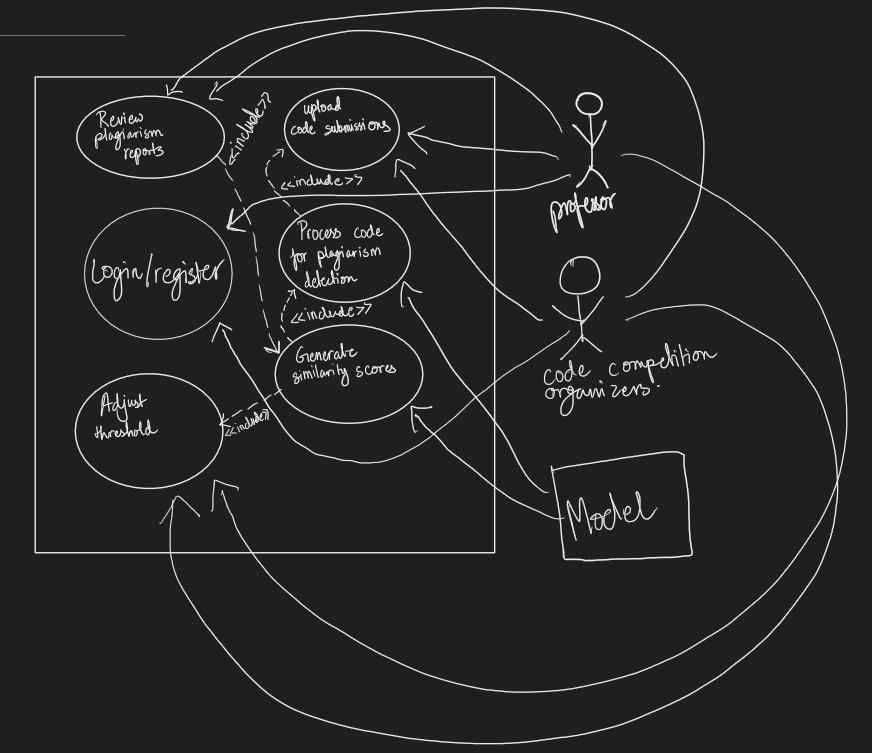 Review
plagiarism
reports
<<include>>
upload
code submissions
<<include>>
Login/register
Process code
for plagiarism
detection
<<include>>
Generate
similarity scores
Adjust
threshold
<<include>>
professor
code competition
organizers.
Model